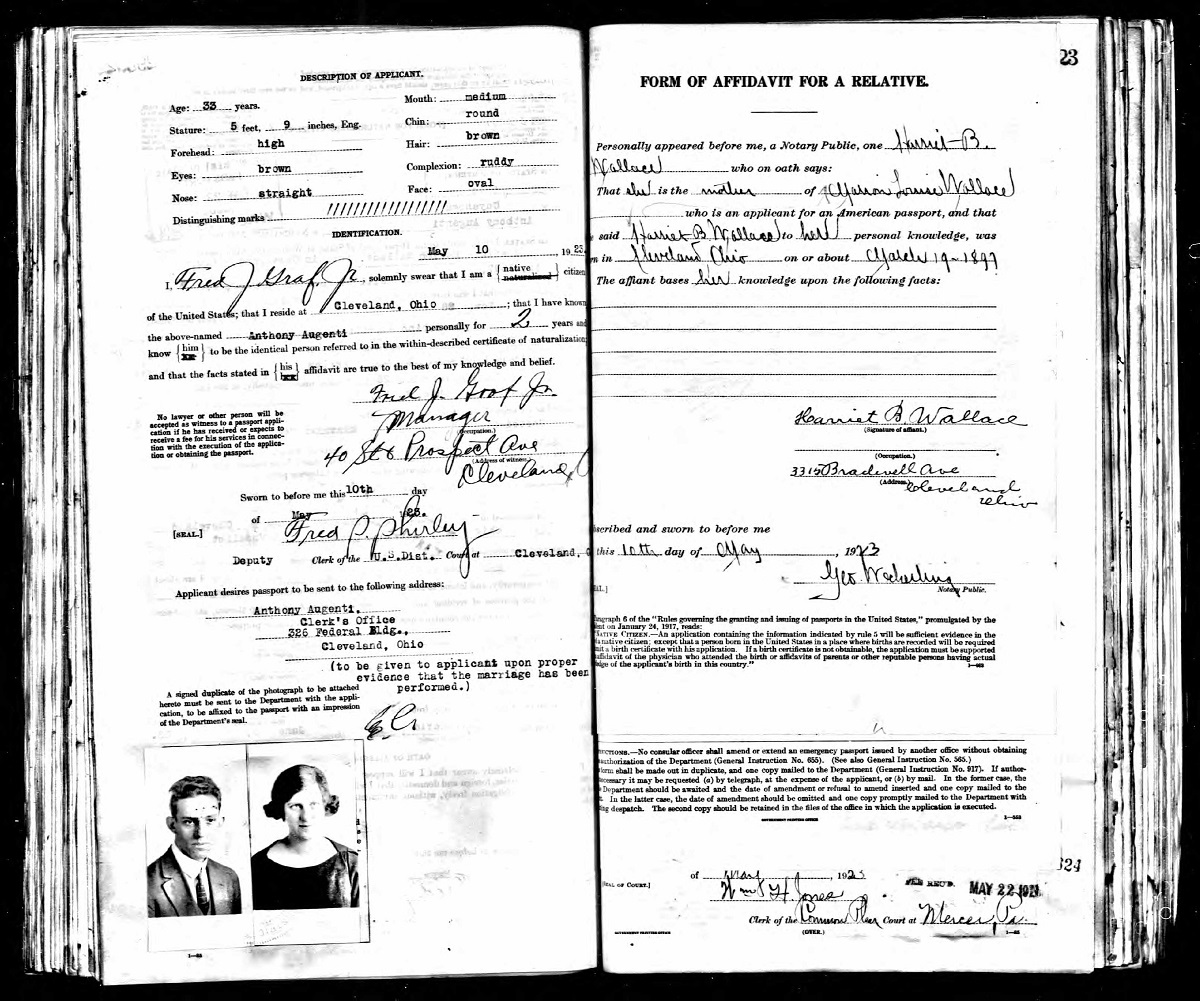 DESCRIPTION OF APPLICANT.
Age: 33 years.
Stature: 5 feet, 9 inches, Eng.
Forehead: high
Eyes: brown
Nose: straight
Distinguishing marks ////////////////////
Mouth: medium
Chin: round
Hair: brown
Complexion: ruddy
Face: oval
IDENTIFICATION.
May 10 1923.
I, Fred J. Graf, Jr., solemnly swear that I am a {native naturalized} citizen
of the United States; that I reside at Cleveland, Ohio; that I have known
the above-named Anthony Augenti personally for 2 years and
know {him} to be the identical person referred to in the within-described certificate of naturalization;
and that the facts stated in {his} affidavit are true to the best of my knowledge and belief.
Fred J. Graf Jr.
Manager
(Occupation.)
40 St & Prospect Ave
(Address of witness.)
Cleveland, O
No lawyer or other person will be
accepted as witness to a passport appli-
cation if he has received or expects to
receive a fee for his services in connec-
tion with the execution of the applica-
tion or obtaining the passport.
Sworn to before me this 10th day
of May /23.
[SEAL.] Fred P. Shirley
Deputy Clerk of the U.S.Dist. Court at Cleveland, O
Applicant desires passport to be sent to the following address:
Anthony Augenti,
Clerk's Office
326 Federal Bldg.,
Cleveland, Ohio
(to be given to applicant upon proper
evidence that the marriage has been
performed.)
A signed duplicate of the photograph to be attached
hereto must be sent to the Department with the appli-
cation, to be affixed to the passport with an impression
of the Department's seal.
23
FORM OF AFFIDAVIT FOR A RELATIVE.
Personally appeared before me, a Notary Public, one Harriet B.
Wallace who on oath says:
That she is the mother of Marion Louise Wallace
who is an applicant for an American passport, and that
said Harriet B Wallace to her personal knowledge, was
n in Cleveland Ohio on or about March 19-1897
The affiant bases her knowledge upon the following facts:
Harriet B. Wallace
(Signature of affiant.)
(Occupation.)
3315 Bradwell Ave
(Address.)
Cleveland
Ohio
scribed and sworn to before me
this 10th day of May, 1923
Geo.
Notary Public.
aragraph 6 of the "Rules governing the granting and issuing of passports in the United States," promulgated by the
ent on January 24, 1917, reads:
NATIVE CITIZEN.—An application containing the information indicated by rule 5 will be sufficient evidence in the
a native citizen; except that a person born in the United States in a place where births are recorded will be required
mit a birth certificate with his application. If a birth certificate is not obtainable, the application must be supported
affidavit of the physician who attended the birth or affidavits of parents or other reputable persons having actual
dge of the applicant's birth in this country."
UCTIONS.—No consular officer shall amend or extend an emergency passport issued by another office without obtaining
authorization of the Department (General Instruction No. 655). (See also General Instruction No. 565.)
form shall be made out in duplicate, and one copy mailed to the Department (General Instruction No. 917). If author-
necessary it may be requested (a) by telegraph, at the expense of the applicant, or (b) by mail. In the former case, the
Department should be awaited and the date of amendment or refusal to amend inserted and one copy mailed to the
t. In the latter case, the date of amendment should be omitted and one copy promptly mailed to the Department with
ng despatch. The second copy should be retained in the files of the office in which the application is executed.
GOVERNMENT PRINTING OFFICE
324
of May, 1923
[SEAL OF COURT.] Wm H. Jones
FEE REC'D. MAY 22 1923
Clerk of the Common Pleas Court at Mercer, Pa.
GOVERNMENT PRINTING OFFICE
(OVER.)